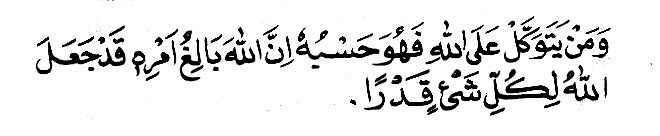 وَمَنْ يَتَوَكَّلْ عَلَى اللهِ فَهُوَ حَسْبُهٗ اِنَّ اللهَ بَالِغُ اَمْرِهٖ قَدْ جَعَلَ
اللهُ لِكُلِّ شَىْءٍ قَدْرًا .